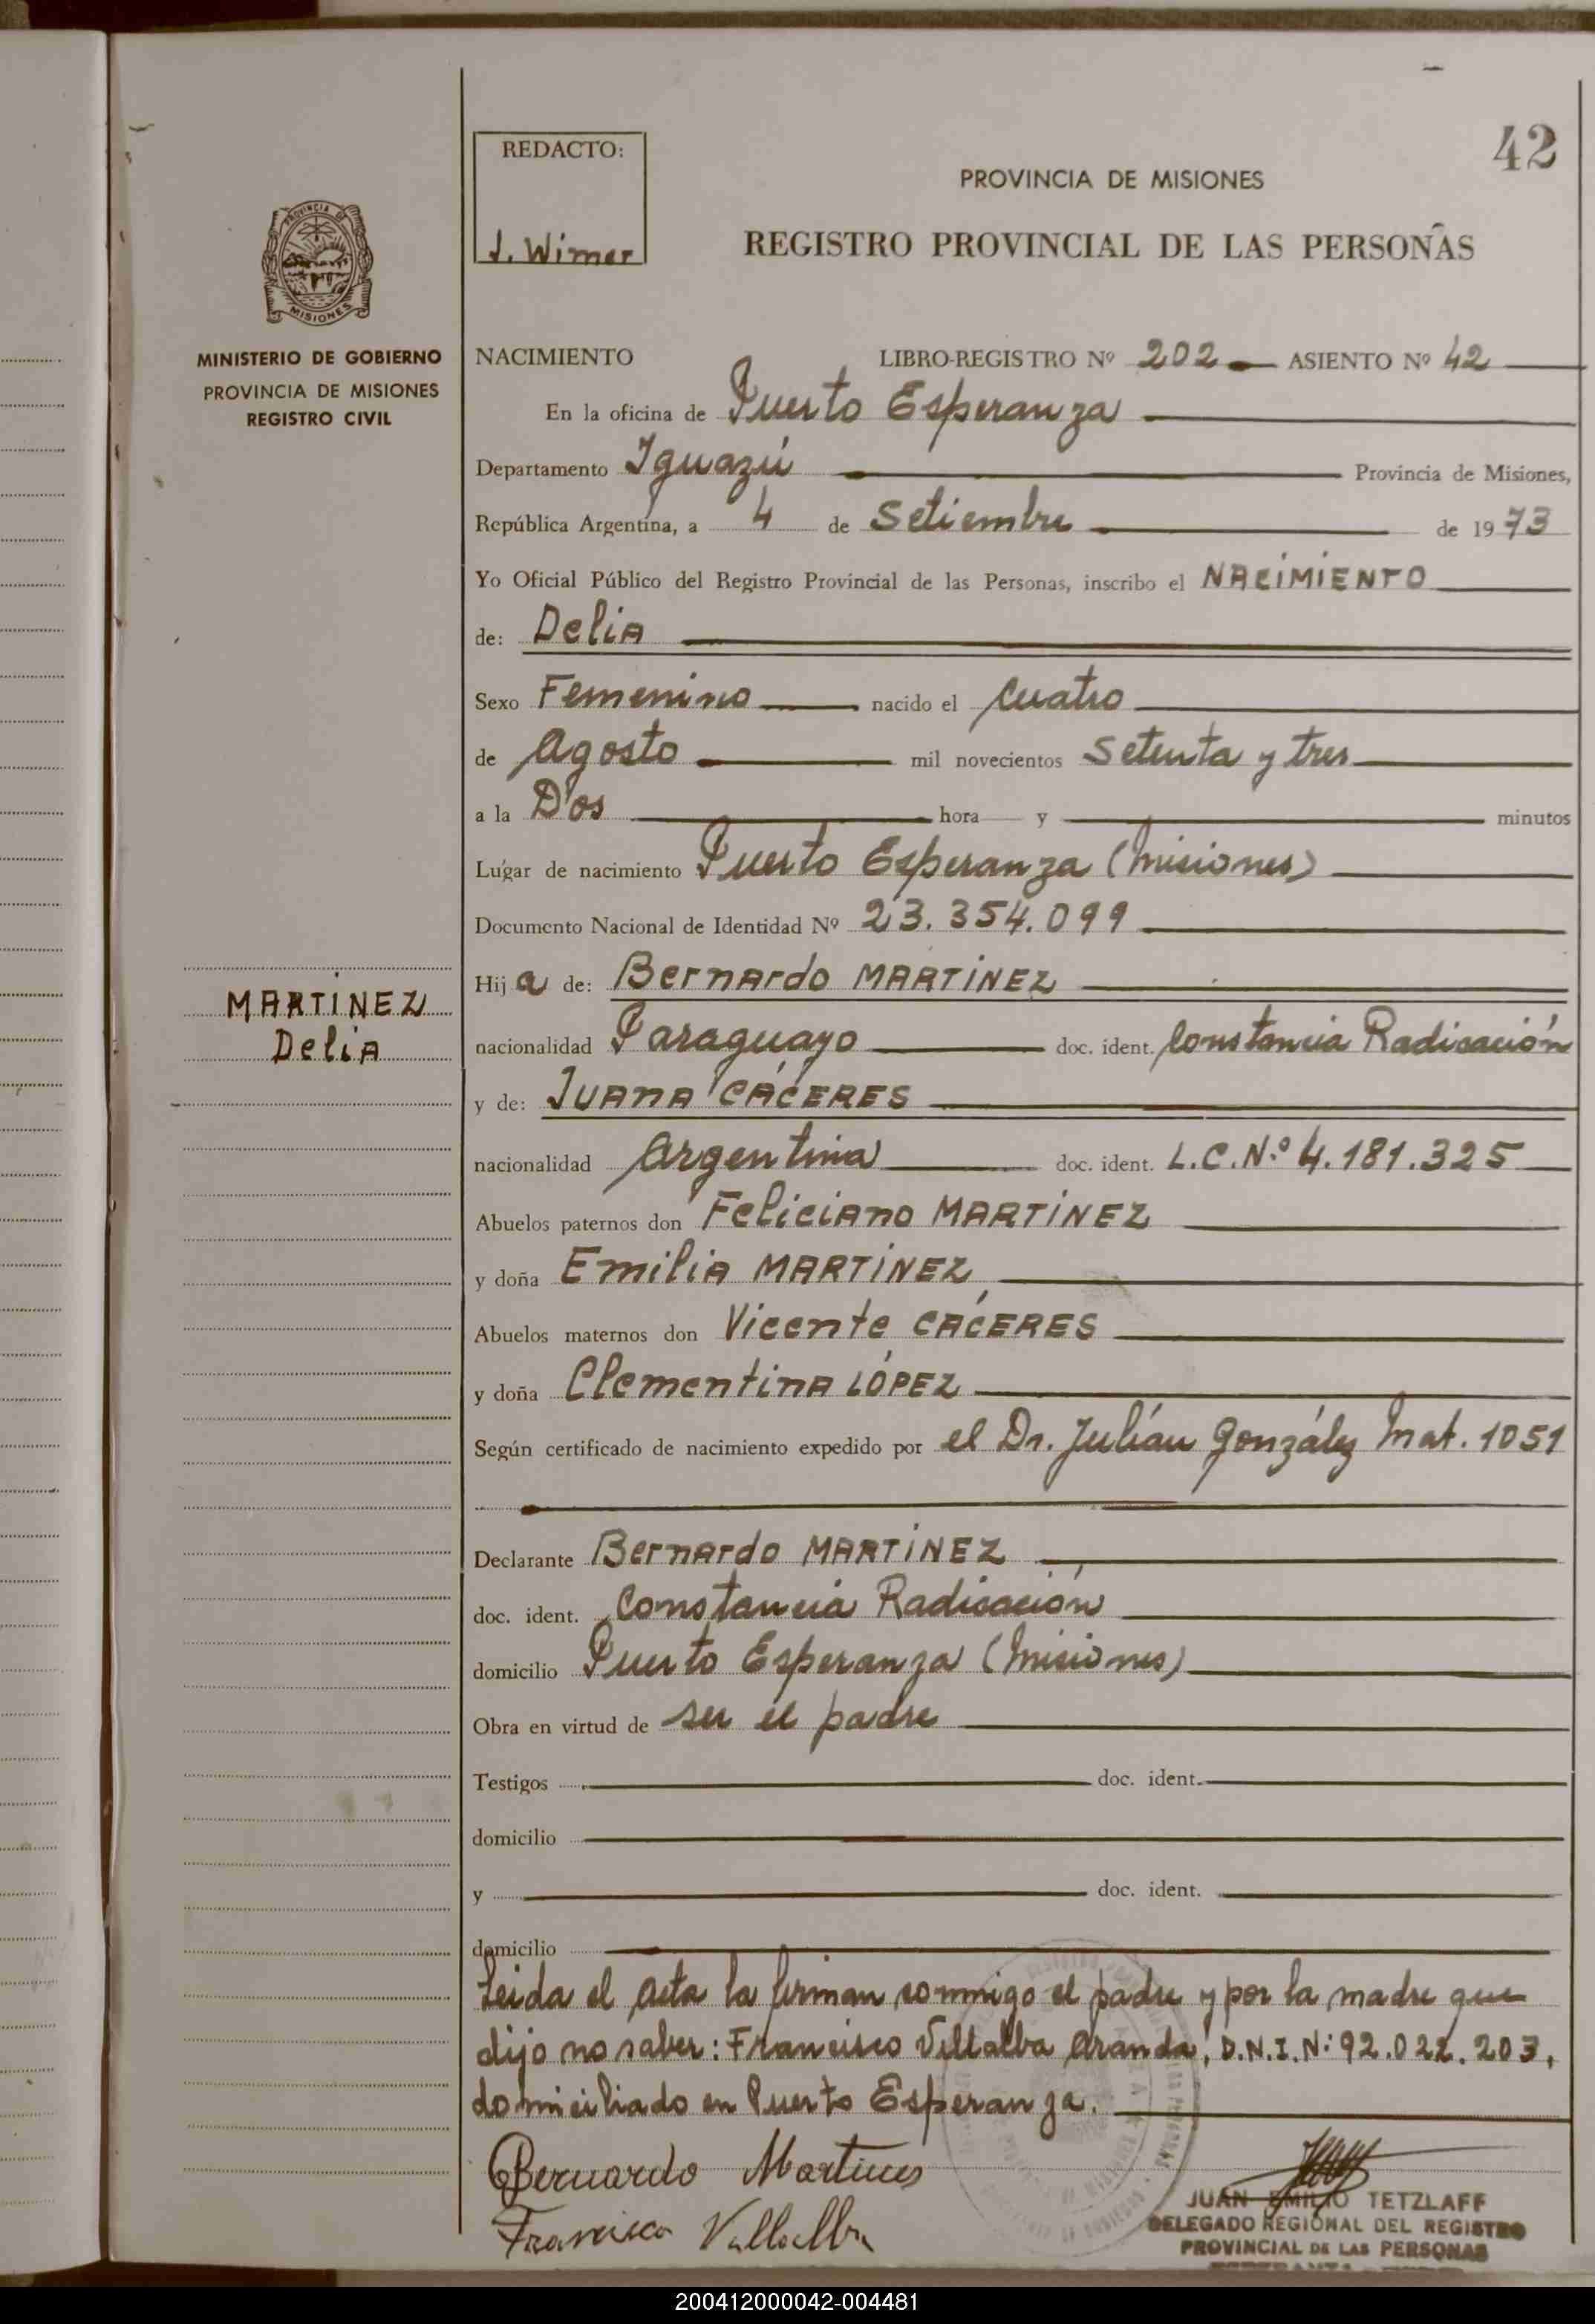 42
REDACTO:
J. Wimer
PROVINCIA DE MISIONES
REGISTRO PROVINCIAL DE LAS PERSONAS
PROVINCIA DE
MISIONES
MINISTERIO DE GOBIERNO
PROVINCIA DE MISIONES
REGISTRO CIVIL
MARTINEZ
Delia
NACIMIENTO LIBRO-REGISTRO Nº 202 ASIENTO Nº 42
En la oficina de Puerto Esperanza
Departamento Iguazú Provincia de Misiones,
República Argentina, a 4 de Setiembre de 1973
Yo Oficial Público del Registro Provincial de las Personas, inscribo el NACIMIENTO
de: Delia
Sexo Femenino nacido el Cuatro
de Agosto mil novecientos Setenta y tres
a la Dos hora y minutos
Lugar de nacimiento Puerto Esperanza (Misiones)
Documento Nacional de Identidad Nº 23.354.099
Hija de: Bernardo MARTÍNEZ
nacionalidad Paraguayo doc. ident. Constancia Radicación
y de: Juana CÁCERES
nacionalidad Argentina doc. ident. L.C.N.º 4.181.325
Abuelos paternos don Feliciano MARTÍNEZ
y doña Emilia MARTÍNEZ
Abuelos maternos don Vicente CÁCERES
y doña Clementina LÓPEZ
Según certificado de nacimiento expedido por el Dr. Julián González Mat. 1051
Declarante Bernardo MARTÍNEZ
doc. ident. Constancia Radicación
domicilio Puerto Esperanza (Misiones)
Obra en virtud de ser el padre
Testigos doc. ident.
domicilio
y doc. ident.
domicilio
Leida el Acta la firman conmigo el padre y por la madre que
dijo no saber: Francisco Villalba Aranda, D.N.I.N: 92.022.203,
domiciliado en Puerto Esperanza.
Bernardo Martines
Francisco Villalba
JUAN EMILIO TETZLAFF
DELEGADO REGIONAL DEL REGISTRO
PROVINCIAL DE LAS PERSONAS
200412000042-004481